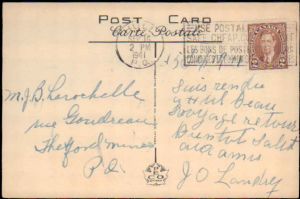 POST CARD
Carte Postale
2 PM
1941
P.Q.
USE POSTAL
LES BONS DE POSTE
2
2
15/9/41
M. J. B. Larochelle
rue Goudreau
Thetford Mines
P.Q.
Suis rendu
Beau
voyage retour
Bientot Salut
aux amis
J O Landry